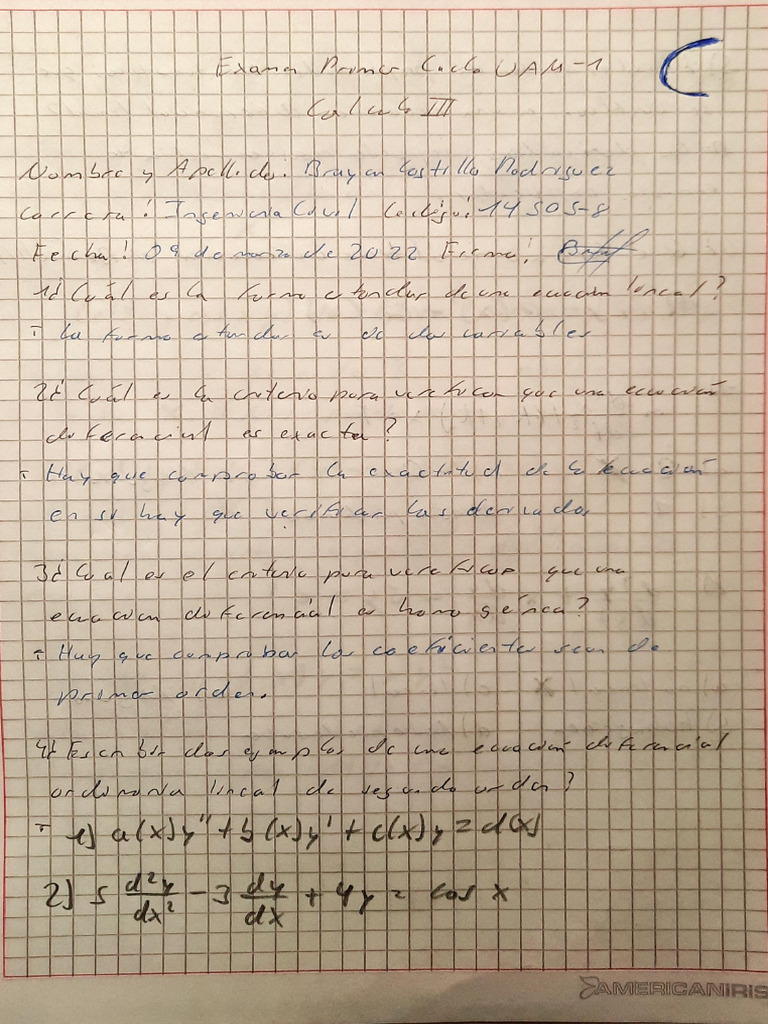 Examen Primer Ciclo UAM-1
C
Calculo III
Nombre y Apellido: Brayan Castillo Rodriguez
Carrera: Ingenieria Civil Codigo: 14505-8
Fecha: 09 de marzo de 2022 Firma:
1¿ Cuál es la forma estandar de una ecuación lineal?
- La forma estandar es de dos variables
2¿ Cuál es la criterio para verificar que una ecuación
diferencial es exacta?
- Hay que comprobar la exactitud de la ecuación
en si hay que verificar las derivadas
3¿ Cual es el criterio para verificar que una
ecuacion diferencial es homogénea?
- Hay que comprobar los coeficientes sean de
primer orden.
4¿ Escribir dos ejemplos de una ecuación diferencial
ordinaria lineal de segundo orden?
- 1) a(x)y'' + b(x)y' + c(x)y = d(x)
2) 5 d²y/dx² - 3 dy/dx + 4y = cos x
AMERICANIRIS